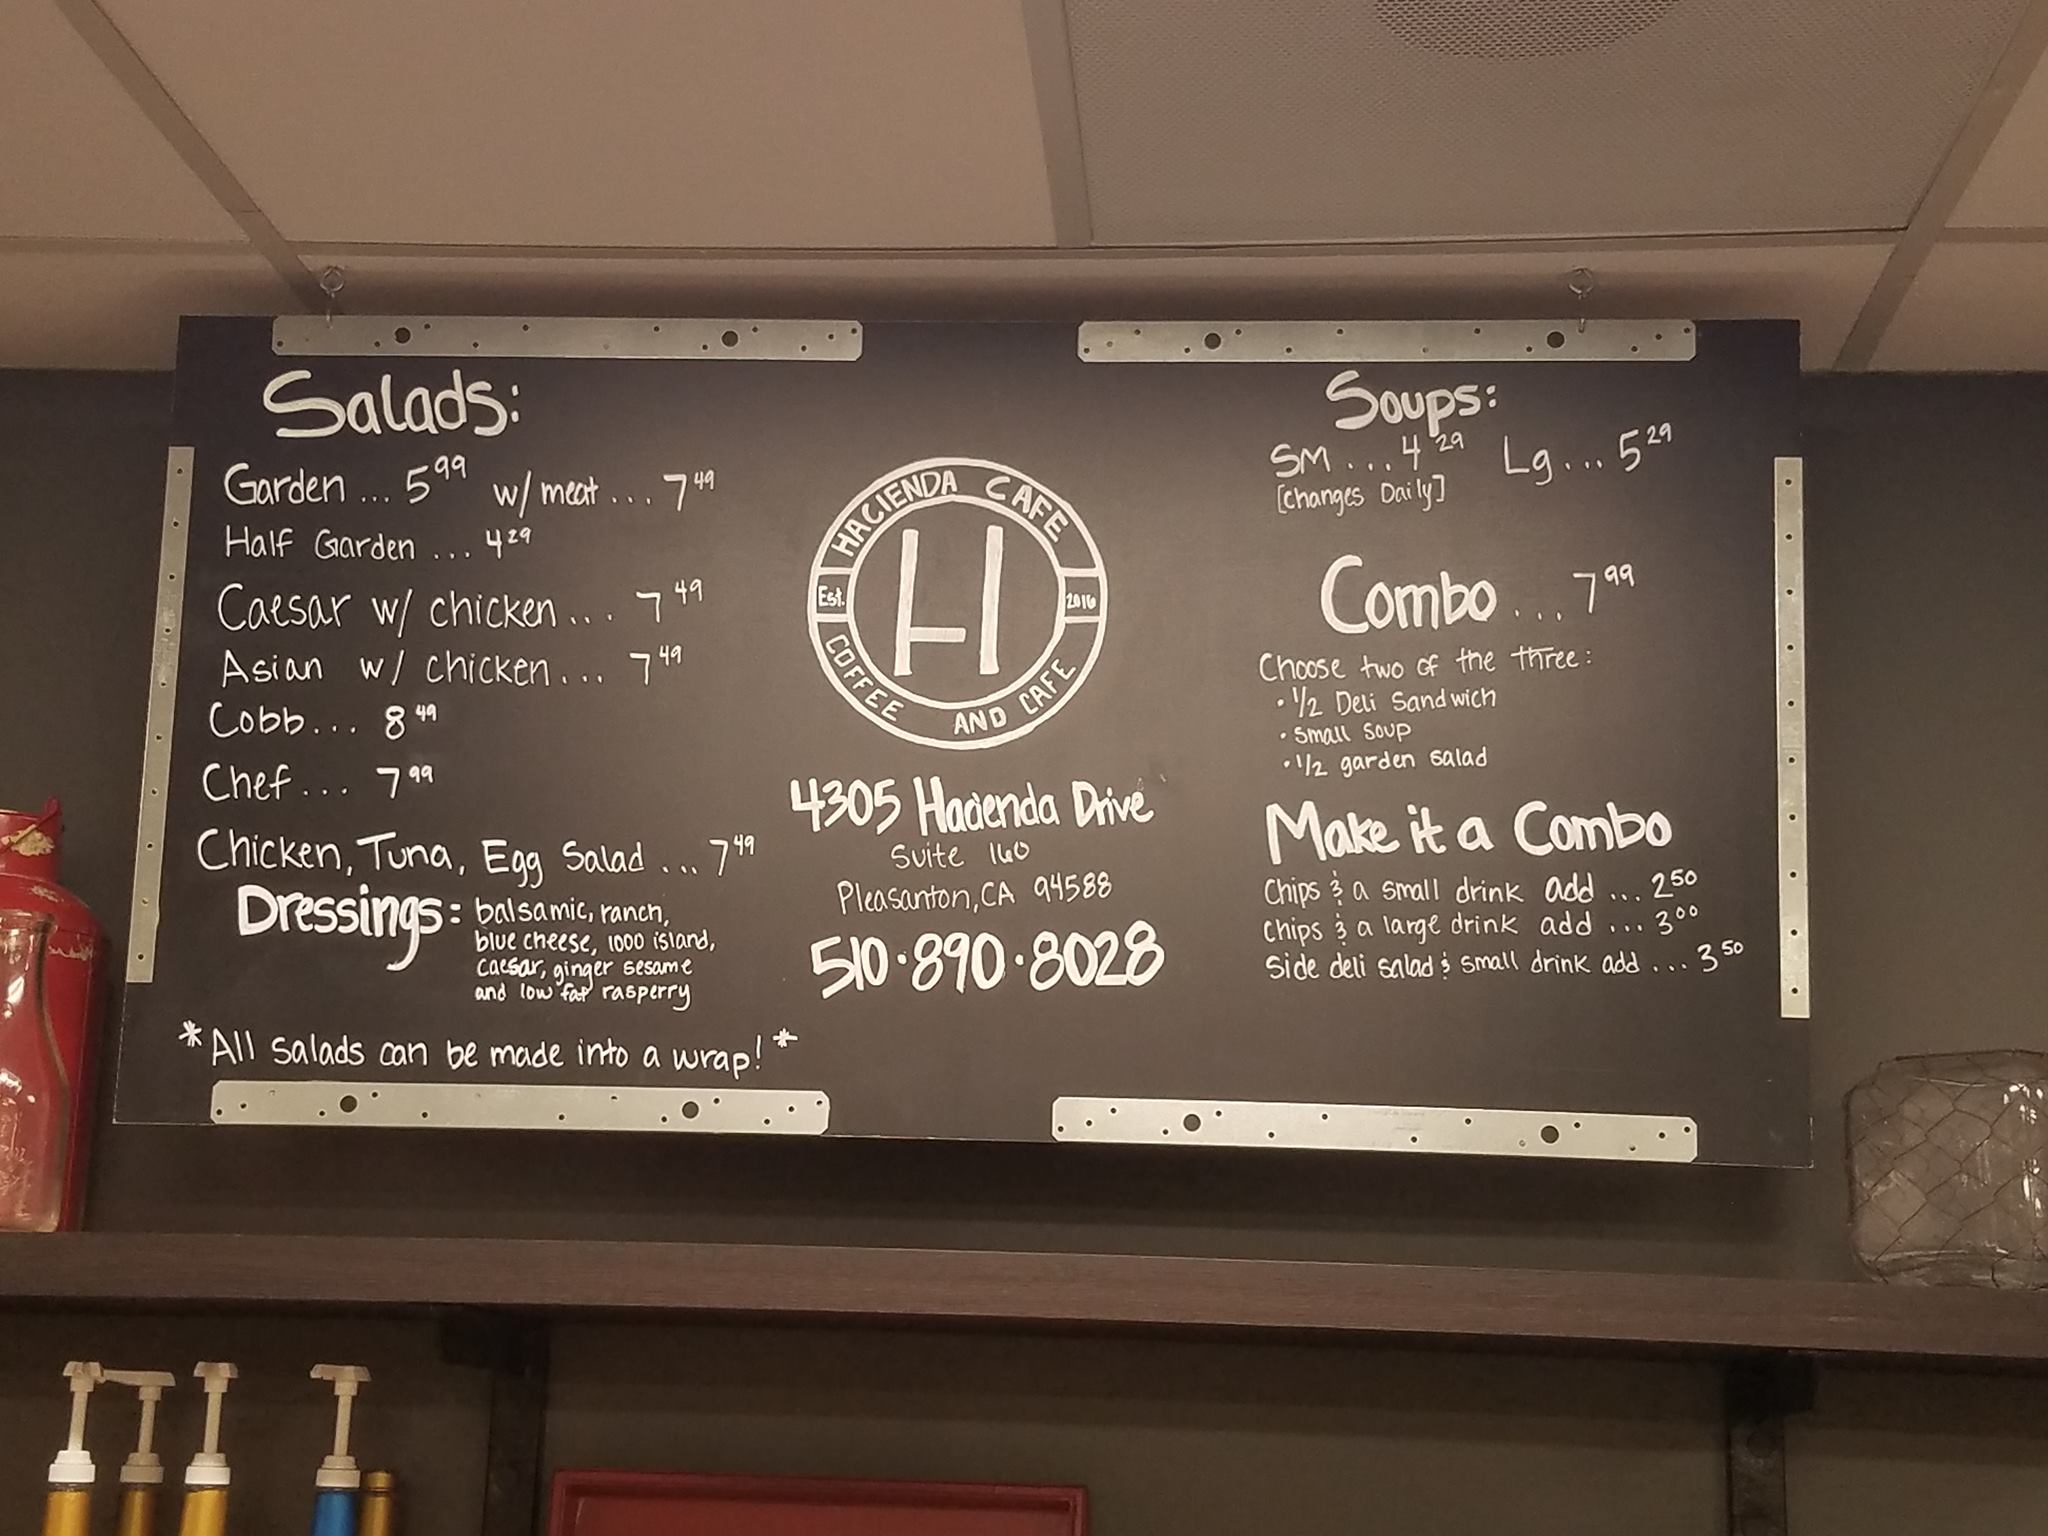 Salads:
Garden ... 5 99 w/ meat ... 7 49
Half Garden ... 4 29
Caesar w/ chicken ... 7 49
Asian w/ chicken ... 7 49
Cobb ... 8 49
Chef ... 7 99
Chicken, Tuna, Egg Salad ... 7 49
Dressings: balsamic, ranch,
blue cheese, 1000 island,
caesar, ginger sesame
and low fat rasperry
*All salads can be made into a wrap!*
HACIENDA CAFE
Est. H 2016
COFFEE AND CAFE
4305 Hacienda Drive
Suite 160
Pleasanton, CA 94588
510·890·8028
Soups:
SM ... 4 29 Lg ... 5 29
[Changes Daily]
Combo ... 7 99
Choose two of the three:
• 1/2 Deli Sandwich
• small soup
• 1/2 garden salad
Make it a Combo
Chips & a small drink add ... 2 50
Chips & a large drink add ... 3 00
Side deli salad & small drink add ... 3 50